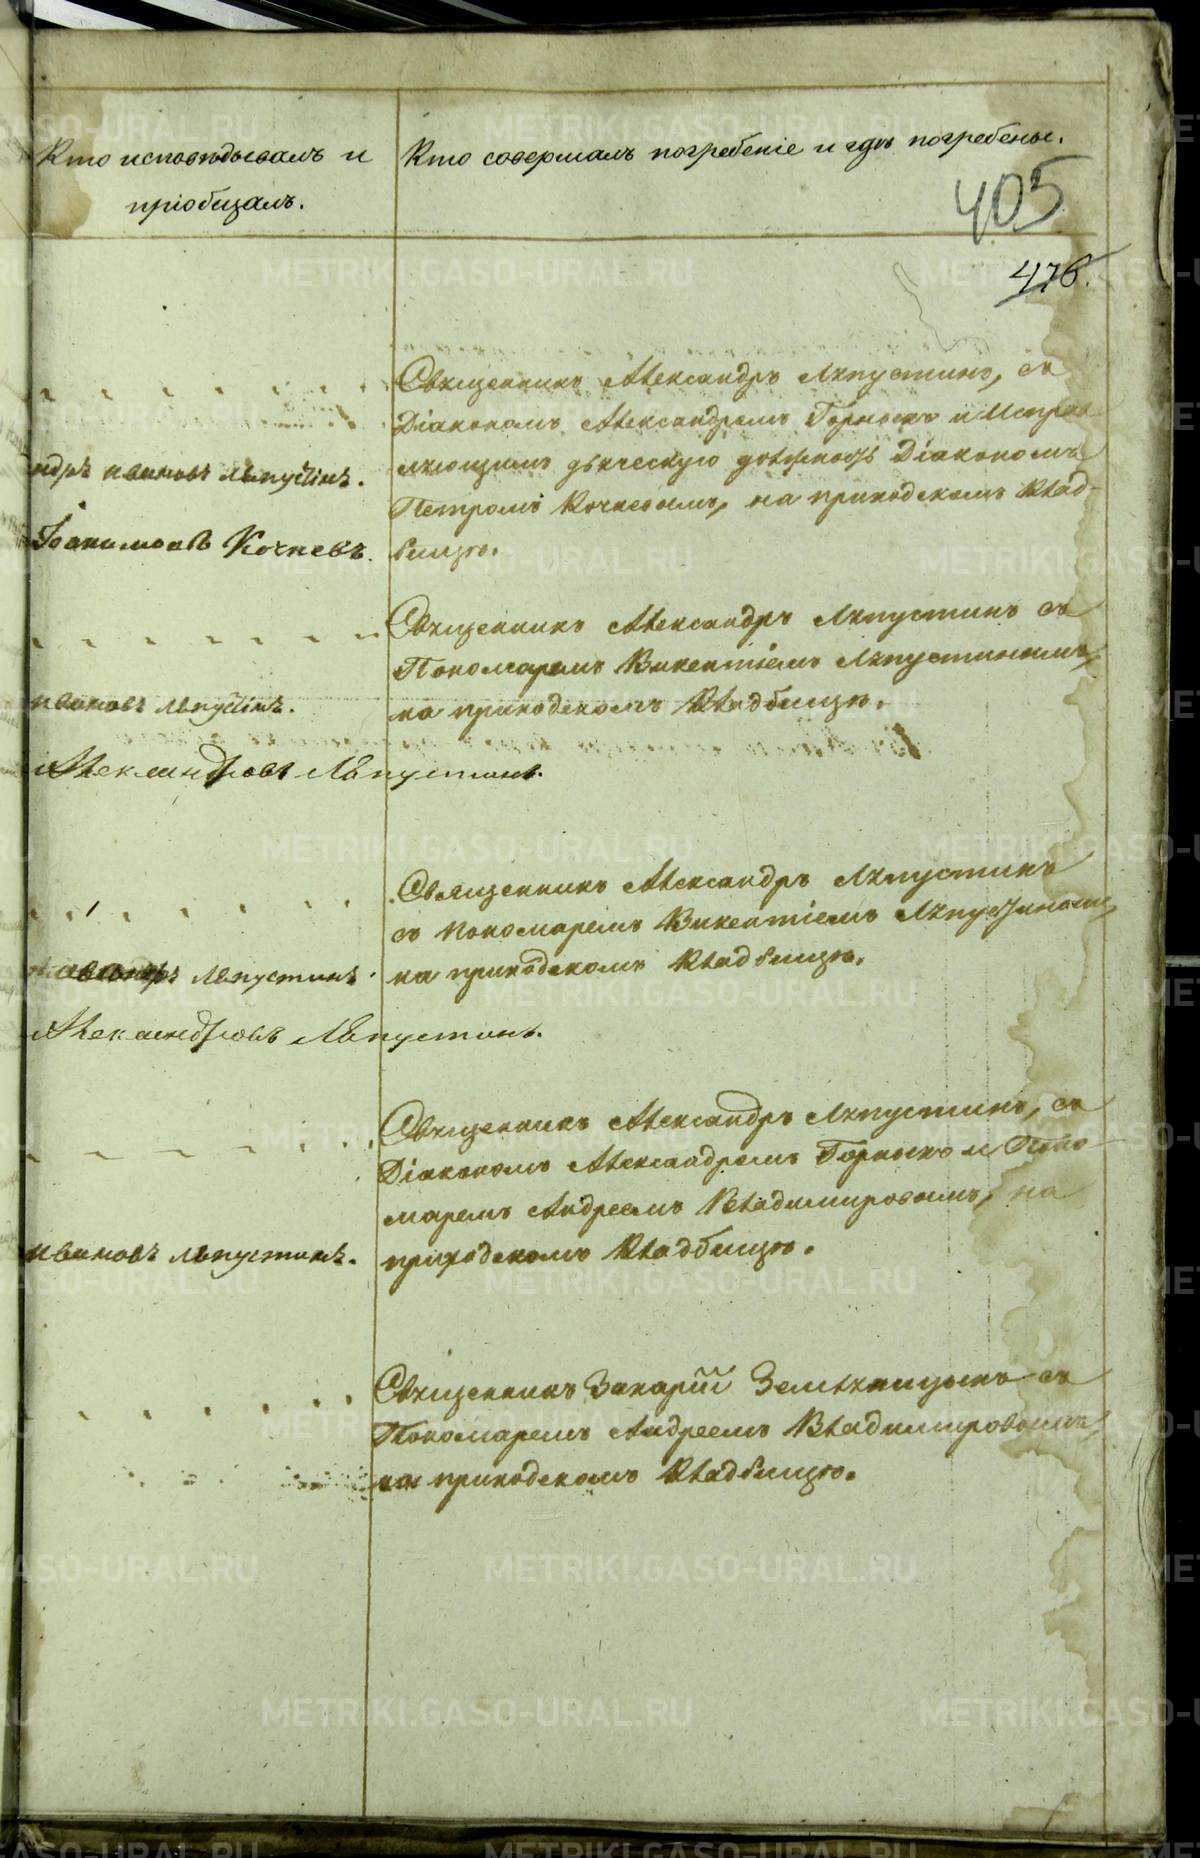 Кто исповѣдывалъ и
пріобщалъ.
Кто совершалъ погребеніе и гдѣ погребены.
405
476.
Священникъ Александръ Ляпустинъ, съ
Діакономъ Александромъ Горныхъ и Исправ
ляющимъ дьяческую должность Діакономъ
Петромъ Кочневымъ, на приходскомъ Клад-
бищѣ.
ндръ Ивановъ Ляпустинъ.
Іоакимовъ Кочневъ.
Священникъ Александръ Ляпустинъ съ
Пономаремъ Викентіемъ Ляпустинымъ,
на приходскомъ Кладбищѣ.
Ивановъ Ляпустинъ.
Александровъ Ляпустинъ.
Священникъ Александръ Ляпустинъ
съ Пономаремъ Викентіемъ Ляпустинымъ,
на приходскомъ Кладбищѣ.
Ляпустинъ.
Александровъ Ляпустинъ.
Священникъ Александръ Ляпустинъ, съ
Діакономъ Александромъ Горныхъ и Поно
маремъ Андреемъ Владимировымъ, на
приходскомъ Кладбищѣ.
Ивановъ Ляпустинъ.
Священникъ Захарій Земляницынъ съ
Пономаремъ Андреемъ Владимировымъ,
на приходскомъ Кладбищѣ.
METRIKI.GASO-URAL.RU